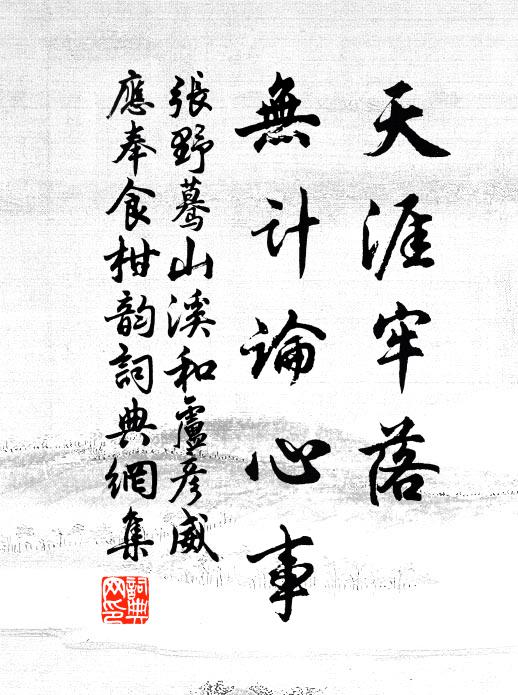 天涯牢落
無计論心事
張野蓦山溪和盧彦威
應奉食柑韵詞典網集
詞典网印